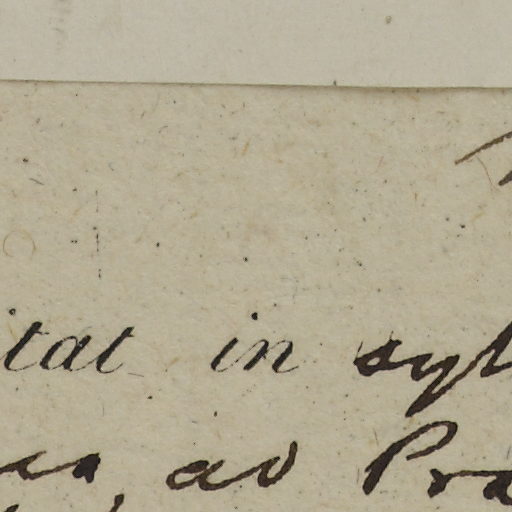 itat in syl
as, ad Pra